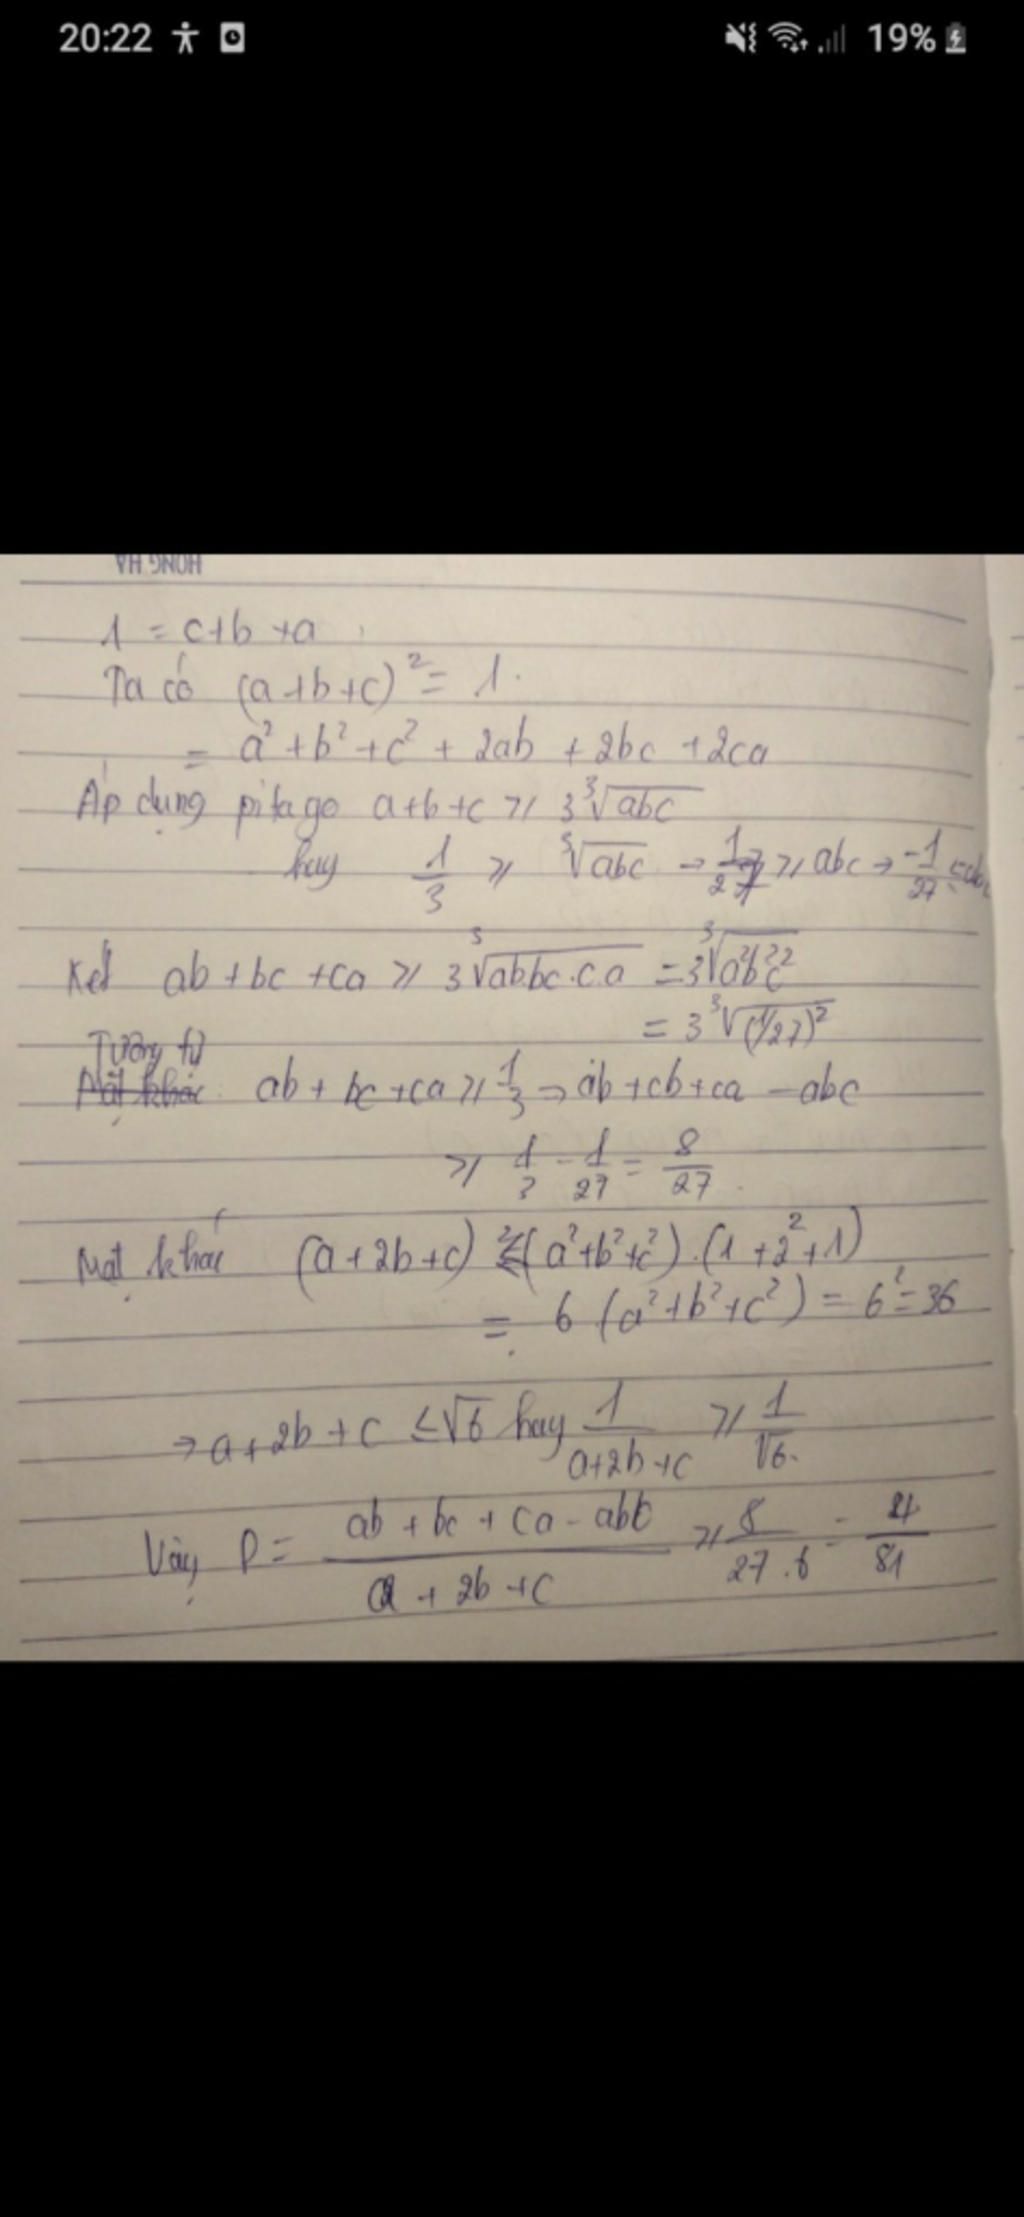 20:22 19%
HONG HA
1 = c+b+a
Ta có (a+b+c)² = 1.
= a² + b² + c² + 2ab + 2bc + 2ca
Áp dụng pitago a+b+c ≥ 3∛abc
hay 1/3 ≥ ∛abc → 1/27 ≥ abc → -1/27 ≤
Kết ab + bc + ca ≥ 3∛ab.bc.c.a = 3∛a²b²c²
= 3∛(1/27)²
Tương tự
Mặt khác ab + bc + ca ≥ 1/3 → ab + cb + ca - abc
≥ 1/3 - 1/27 = 8/27.
Mặt khác (a+2b+c)² ≤ (a²+b²+c²).(1+2²+1)
= 6(a²+b²+c²) = 6² = 36
→ a + 2b + c ≤ √6 hay 1/(a+2b+c) ≥ 1/√6.
Vậy P = (ab + bc + ca - abc)/(a + 2b + c) ≥ 8/(27.6) = 4/81